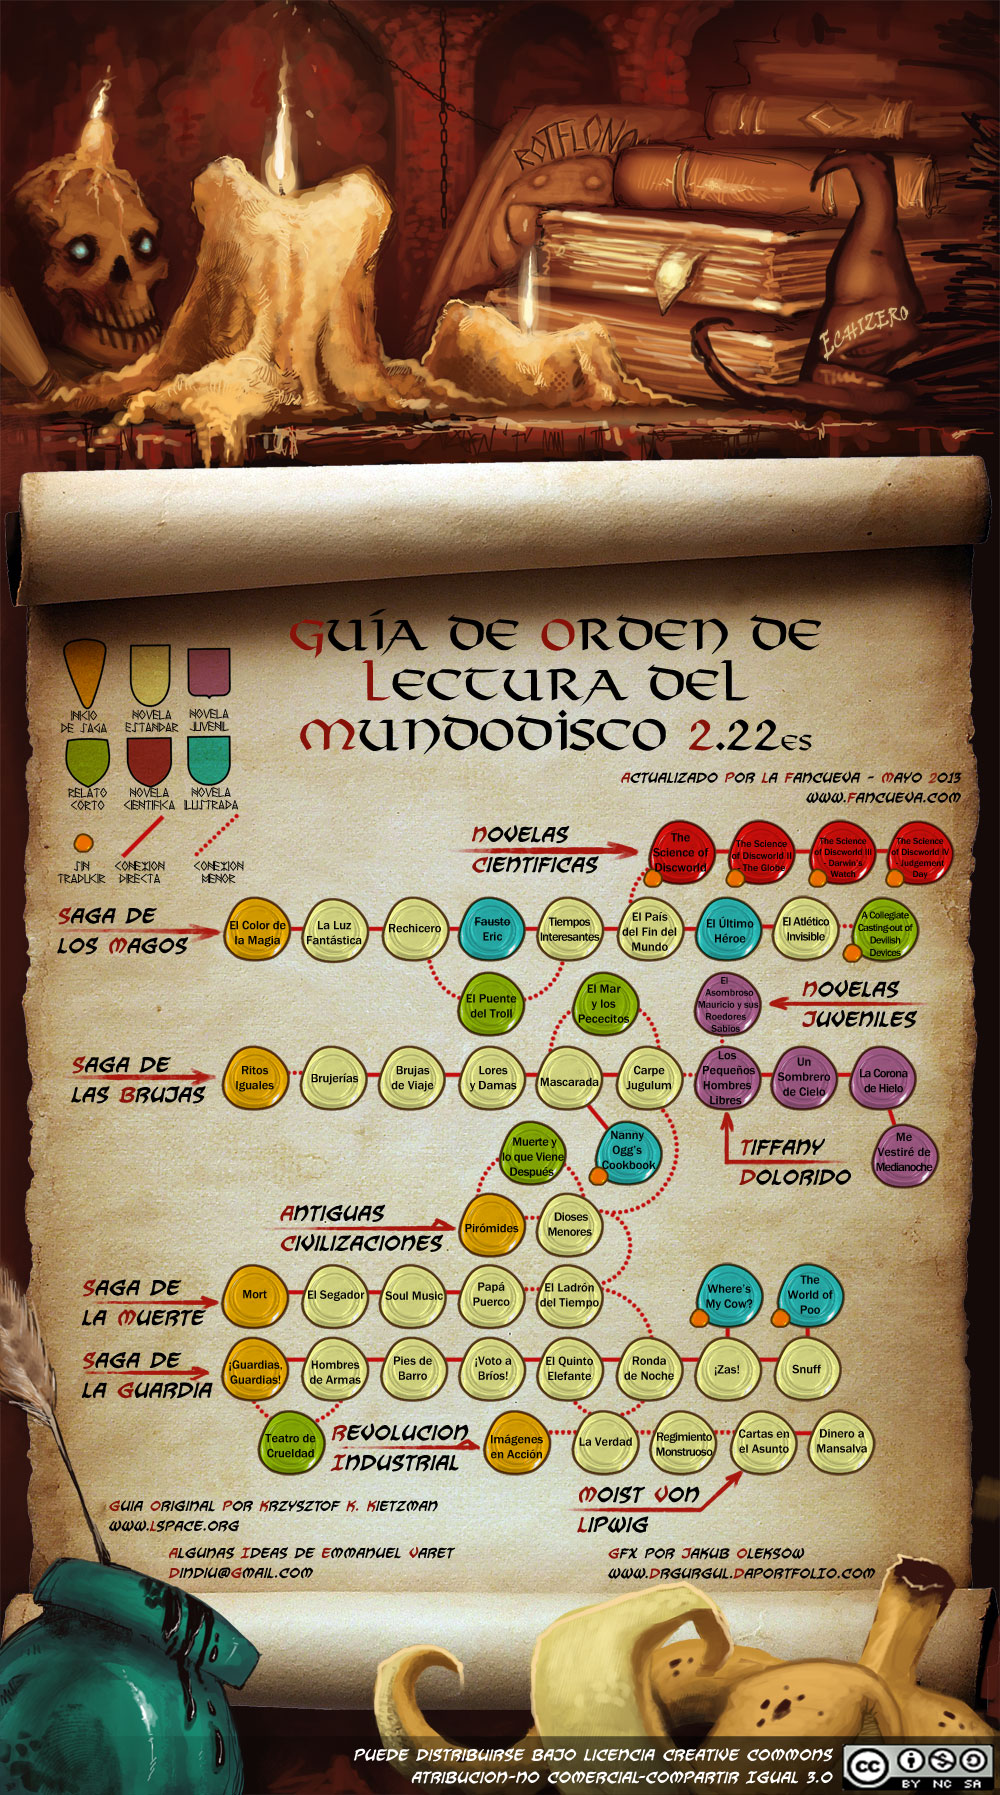 ROTFLONO
ECHIZERO
GUÍA DE ORDEN DE
LECTURA DEL
MUNDODISCO 2.22ES
ACTUALIZADO POR LA FANCUEVA - MAYO 2013
WWW.FANCUEVA.COM
INICIO
DE SAGA
NOVELA
ESTANDAR
NOVELA
JUVENIL
RELATO
CORTO
NOVELA
CIENTIFICA
NOVELA
ILUSTRADA
SIN
TRADUCIR
CONEXION
DIRECTA
CONEXION
MENOR
NOVELAS
CIENTIFICAS
The
Science of
Discworld
The Science
of Discworld II
- The Globe
The Science
of Discworld III
- Darwin's
Watch
The Science
of Discworld IV
- Judgement
Day
SAGA DE
LOS MAGOS
El Color de
la Magia
La Luz
Fantástica
Rechicero
Fausto
Eric
Tiempos
Interesantes
El País
del Fin del
Mundo
El Último
Héroe
El Atlético
Invisible
A Collegiate
Casting-out of
Devilish
Devices
El Puente
del Troll
El Mar
y los
Pececitos
El
Asombroso
Mauricio y sus
Roedores
Sabios
NOVELAS
JUVENILES
SAGA DE
LAS BRUJAS
Ritos
Iguales
Brujerías
Brujas
de Viaje
Lores
y Damas
Mascarada
Carpe
Jugulum
Los
Pequeños
Hombres
Libres
Un
Sombrero
de Cielo
La Corona
de Hielo
Muerte y
lo que Viene
Después
Nanny
Ogg's
Cookbook
TIFFANY
DOLORIDO
Me
Vestiré de
Medianoche
ANTIGUAS
CIVILIZACIONES
Pirómides
Dioses
Menores
SAGA DE
LA MUERTE
Mort
El Segador
Soul Music
Papá
Puerco
El Ladrón
del Tiempo
Where's
My Cow?
The
World of
Poo
SAGA DE
LA GUARDIA
¡Guardias,
Guardias!
Hombres
de Armas
Pies de
Barro
¡Voto a
Bríos!
El Quinto
Elefante
Ronda
de Noche
¡Zas!
Snuff
Teatro de
Crueldad
REVOLUCION
INDUSTRIAL
Imágenes
en Acción
La Verdad
Regimiento
Monstruoso
Cartas en
el Asunto
Dinero a
Mansalva
MOIST VON
LIPWIG
GUIA ORIGINAL POR KRZYSZTOF K. KIETZMAN
WWW.LSPACE.ORG
ALGUNAS IDEAS DE EMMANUEL VARET
DINDIU@GMAIL.COM
GFX POR JAKUB OLEKSOW
WWW.DRGURGUL.DAPORTFOLIO.COM
PUEDE DISTRIBUIRSE BAJO LICENCIA CREATIVE COMMONS
ATRIBUCION-NO COMERCIAL-COMPARTIR IGUAL 3.0
CC
BY NC SA